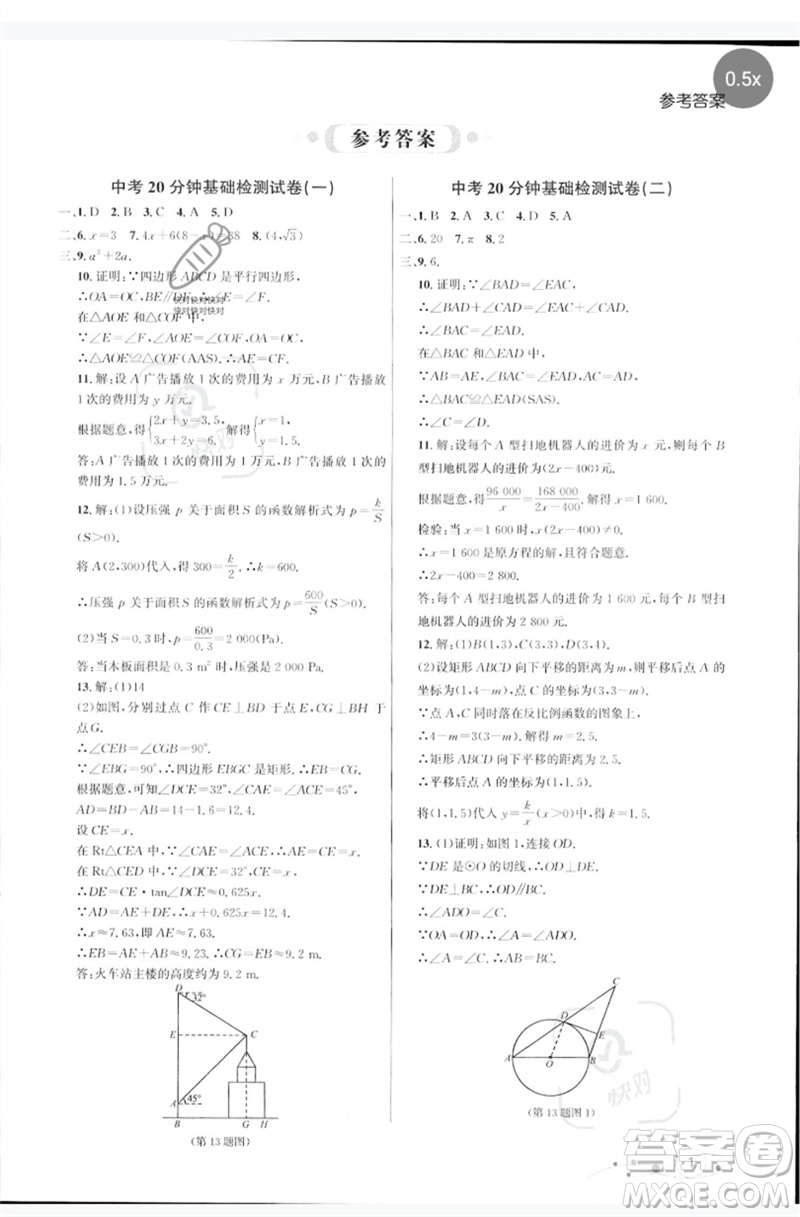 0.5x
参考答案
参考答案
中考 20 分钟基础检测试卷(一)
一、1. D 2. B 3. C 4. A 5. D
二、6. x=3 7. 4x+6(8-x)=38 8. (4,√3)
三、9. a²+2a.
10. 证明:∵四边形 ABCD 是平行四边形,
∴OA=OC,BE∥DF.∴∠E=∠F.
在△AOE 和△COF 中,
∵∠E=∠F,∠AOE=∠COF,OA=OC,
∴△AOE≌△COF(AAS).∴AE=CF.
11. 解:设 A 广告播放 1 次的费用为 x 万元,B 广告播放
1 次的费用为 y 万元.
根据题意,得{2x+y=3.5, 3x+2y=6. 解得{x=1, y=1.5.
答:A 广告播放 1 次的费用为 1 万元,B 广告播放 1 次的
费用为 1.5 万元.
12. 解:(1)设压强 p 关于面积 S 的函数解析式为 p=k/S
(S>0).
将 A(2,300)代入,得 300=k/2.∴k=600.
∴压强 p 关于面积 S 的函数解析式为 p=600/S(S>0).
(2)当 S=0.3 时,p=600/0.3=2 000(Pa).
答:当木板面积是 0.3 m² 时,压强是 2 000 Pa.
13. 解:(1)14
(2)如图,分别过点 C 作 CE⊥BD 于点 E,CG⊥BH 于
点 G.
∴∠CEB=∠CGB=90°.
∵∠EBG=90°,∴四边形 EBGC 是矩形.
根据题意,可知∠CDE=32°,∠CAE=45°,
AD=BD-AB=14-1.6=12.4.
设 CE=x.
在 Rt△CEA 中,∵∠CAE=45°,∴AE=CE=x.
在 Rt△CED 中,∵∠CDE=32°,∠ECD=58°,
∴DE=CE·tan∠ECD≈0.625x.
∵AD=AE+DE,∴x+0.625x=12.4.
∴x≈7.63,即 AE≈7.63.
∴EB=AE+AB=7.63+1.6≈9.2 m.
答:火车站主楼的高度约为 9.2 m.
D
32°
E
C
A
45°
B G H
(第 13 题图)
中考 20 分钟基础检测试卷(二)
一、1. B 2. A 3. C 4. D 5. A
二、6. 20 7. π 8. 2
三、9. 6.
10. 证明:∵∠BAD=∠EAC,
∴∠BAD+∠CAD=∠EAC+∠CAD.
∴∠BAC=∠EAD.
在△BAC 和△EAD 中,
∵AB=AE,∠BAC=∠EAD,AC=AD,
∴△BAC≌△EAD(SAS).
∴∠C=∠D.
11. 解:设每个 A 型扫地机器人的进价为 x 元,则每个 B
型扫地机器人的进价为(2x-400)元.
根据题意,得96 000/x=168 000/2x-400.解得 x=1 600.
检验:当 x=1 600 时,x(2x-400)≠0.
∴x=1 600 是原方程的解,且符合题意.
∴2x-400=2 800.
答:每个 A 型扫地机器人的进价为 1 600 元,每个 B 型扫
地机器人的进价为 2 800 元.
12. 解:(1)B(1,3),C(3,3),D(3,4).
(2)设矩形 ABCD 向下平移的距离为 m,则平移后点 A 的
坐标为(1,4-m),点 C 的坐标为(3,3-m).
∵点 A,C 同时落在反比例函数的图象上,
∴4-m=3(3-m).解得 m=2.5.
∴矩形 ABCD 向下平移的距离为 2.5.
∴平移后点 A 的坐标为(1,1.5).
将(1,1.5)代入 y=k/x(x>0),得 k=1.5.
13. (1)证明:如图 1,连接 OD.
∵DE 是⊙O 的切线,∴OD⊥DE.
∵DE⊥BC,∴OD∥BC.
∴∠ADO=∠C.
∵OA=OD,∴∠A=∠ADO.
∴∠A=∠C.
C
D
E
A O B
(第 13 题图 1)
快对快对快对
快对快对快对
快对
快对
1
答案卷
MXQE.COM